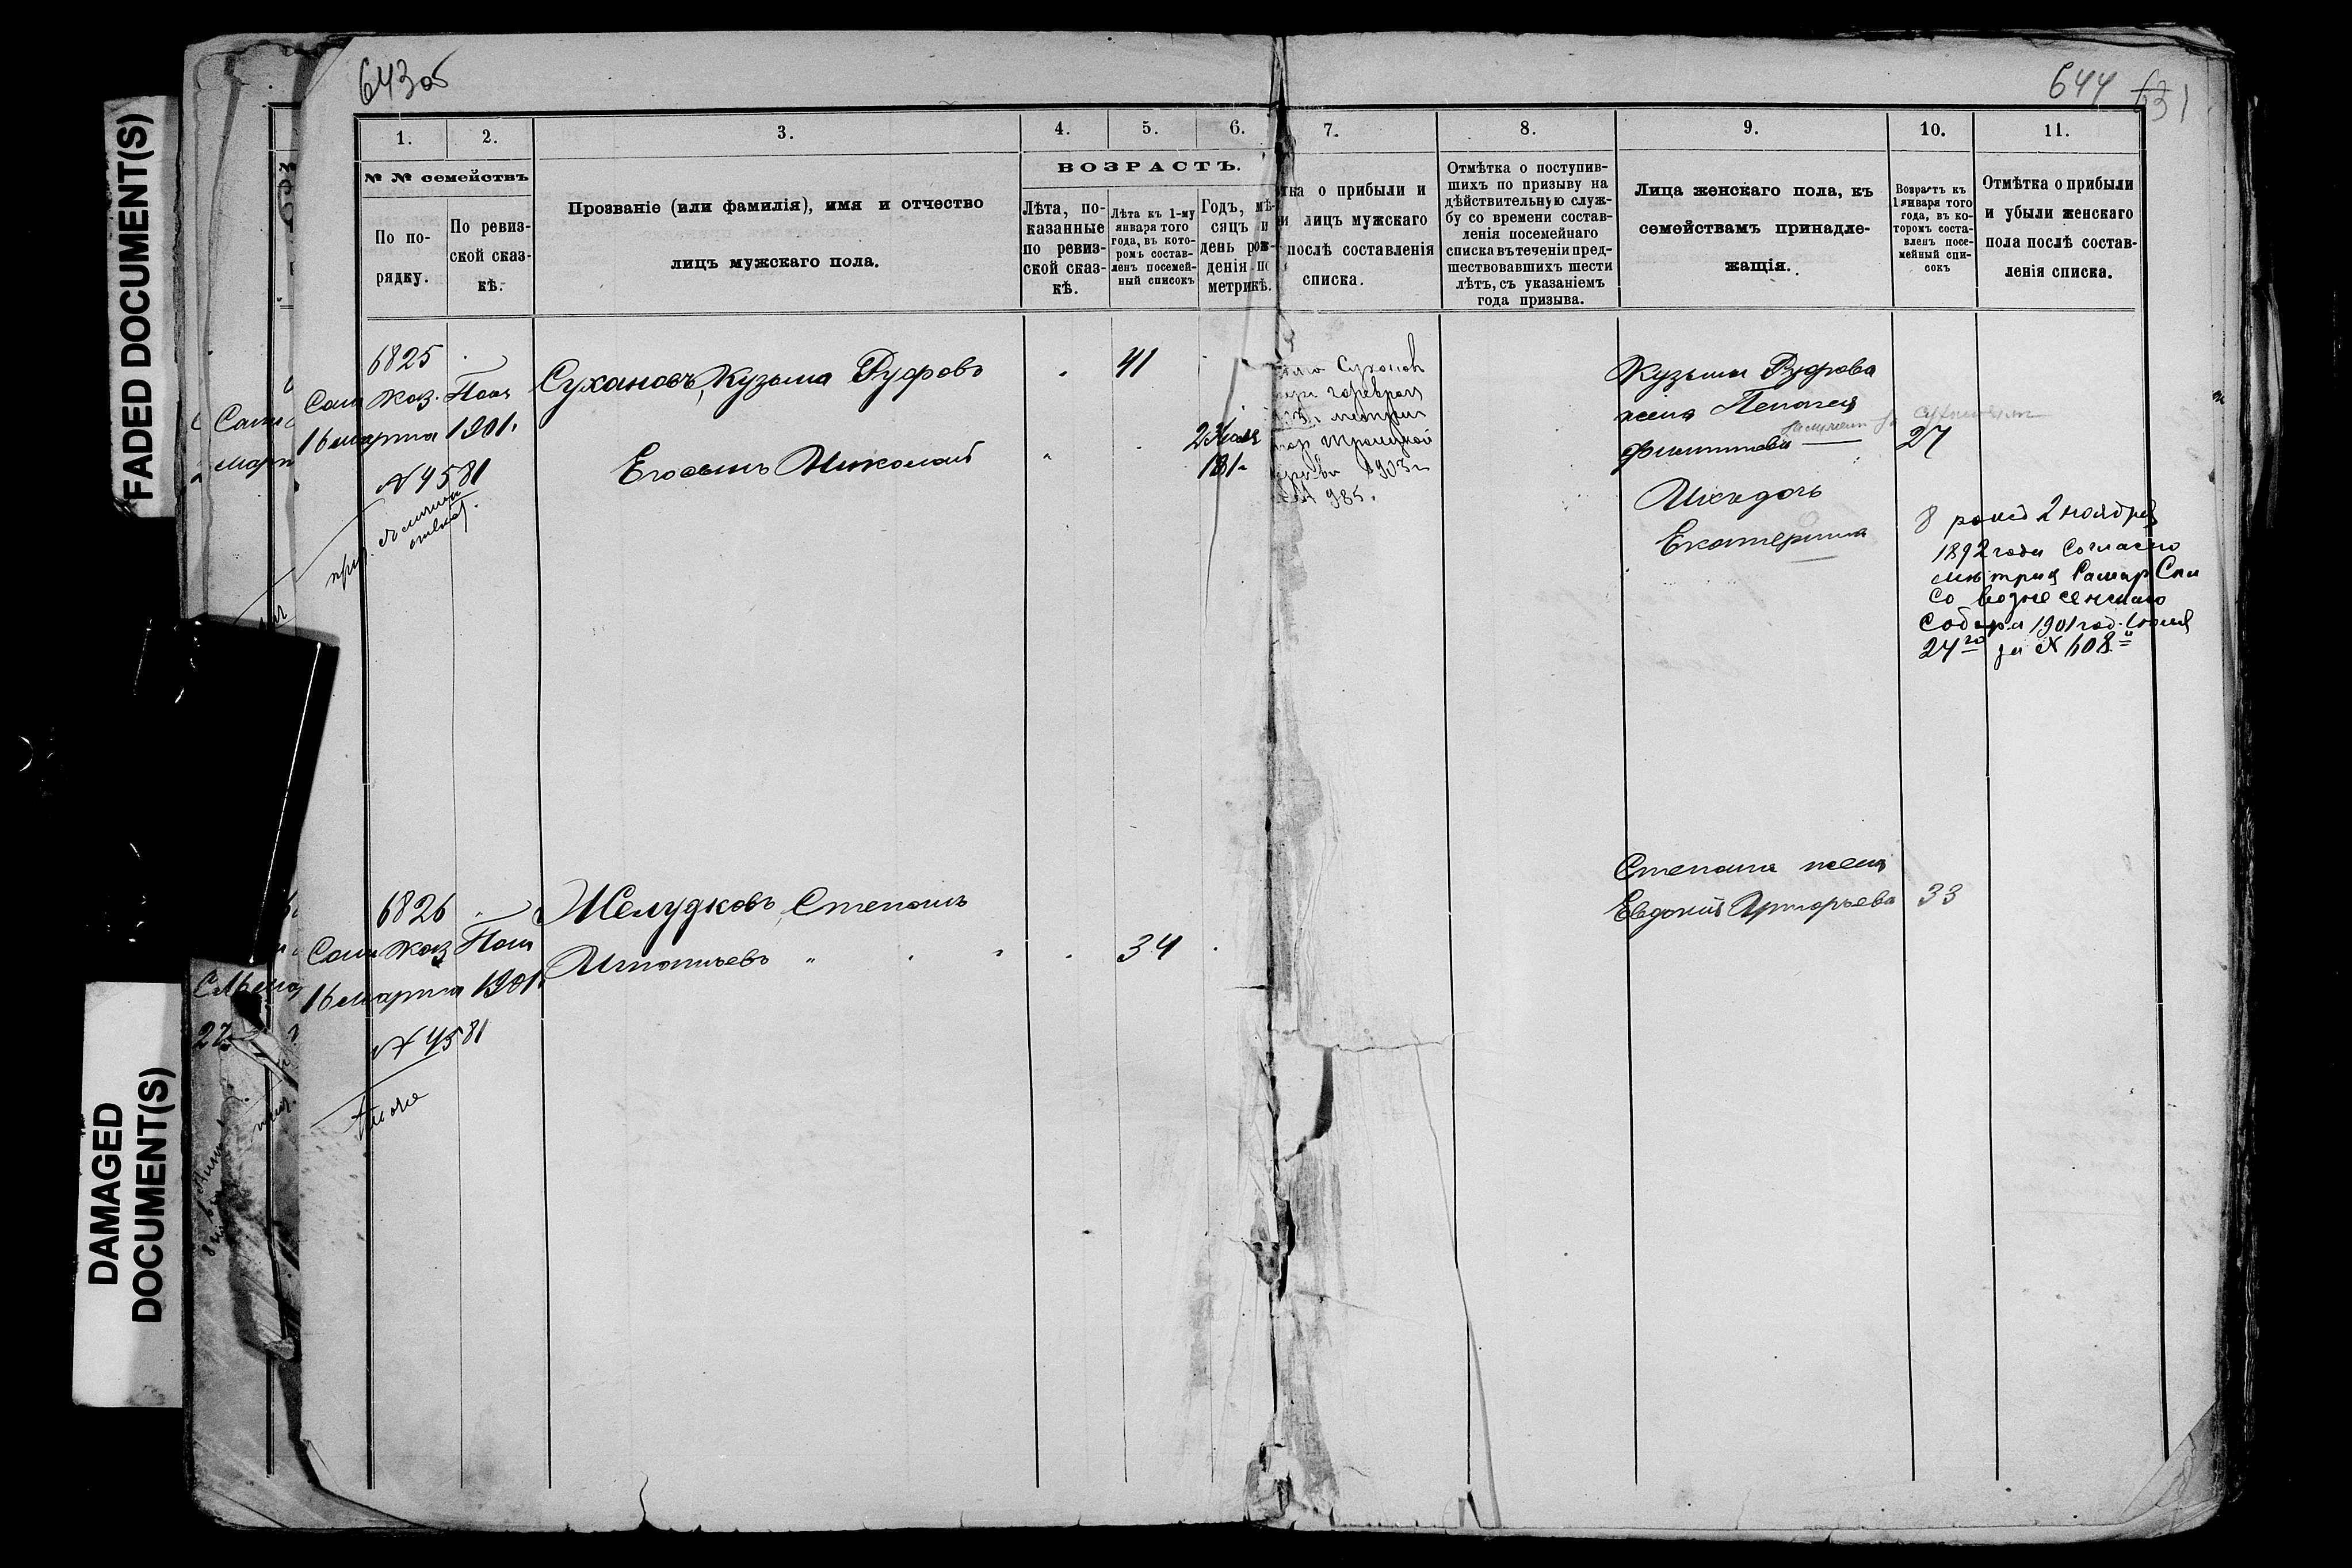 FADED DOCUMENT(S)
DAMAGED
DOCUMENT(S)
643об
644
631
1.
2.
3.
4.
5.
6.
7.
8.
9.
10.
11.
№ № семействъ
По по-
рядку.
По ревиз-
ской сказ-
кѣ.
Прозваніе (или фамилія), имя и отчество
лицъ мужскаго пола.
ВОЗРАСТЪ.
Лѣта, по-
казанные
по ревиз-
ской сказ-
кѣ.
Лѣта къ 1-му
января того
года, въ кото-
ромъ состав-
ленъ посемей-
ный списокъ
Годъ, мѣ-
сяцъ и
день рож-
денія по
метрикѣ.
тка о прибыли и
и лицъ мужскаго
послѣ составленія
списка.
Отмѣтка о поступив-
шихъ по призыву на
дѣйствительную служ-
бу со времени состав-
ленія посемейнаго
списка въ теченіи пред-
шествовавшихъ шести
лѣтъ, съ указаніемъ
года призыва.
Лица женскаго пола, къ
семействамъ принадле-
жащія.
Возрастъ къ
1 января того
года, въ ко-
торомъ соста-
вленъ посе-
мейный спи-
сокъ
Отмѣтка о прибыли
и убыли женскаго
пола послѣ состав-
ленія списка.
6825
Сам Каз. Пала
16 марта 1901г
№ 4581
Сухановъ, Кузьма Руфовъ
41
Его сынъ Николай
Кузьмы Руфова
жена Пелагея
27
Ихъ дочь
Екатерина
8 ронд 2 ноября
1892 года Согласно
метрик Самар Спа
со вознесенскаго
Собора 1901 год. Іюня
24го за № 608
6826
Сам Каз Пала
16 марта 1901г
№ 4581
Тоже
Желудковъ, Степанъ
Игнатьевъ "
34
Степана жена
Евдокия Григорьева 33